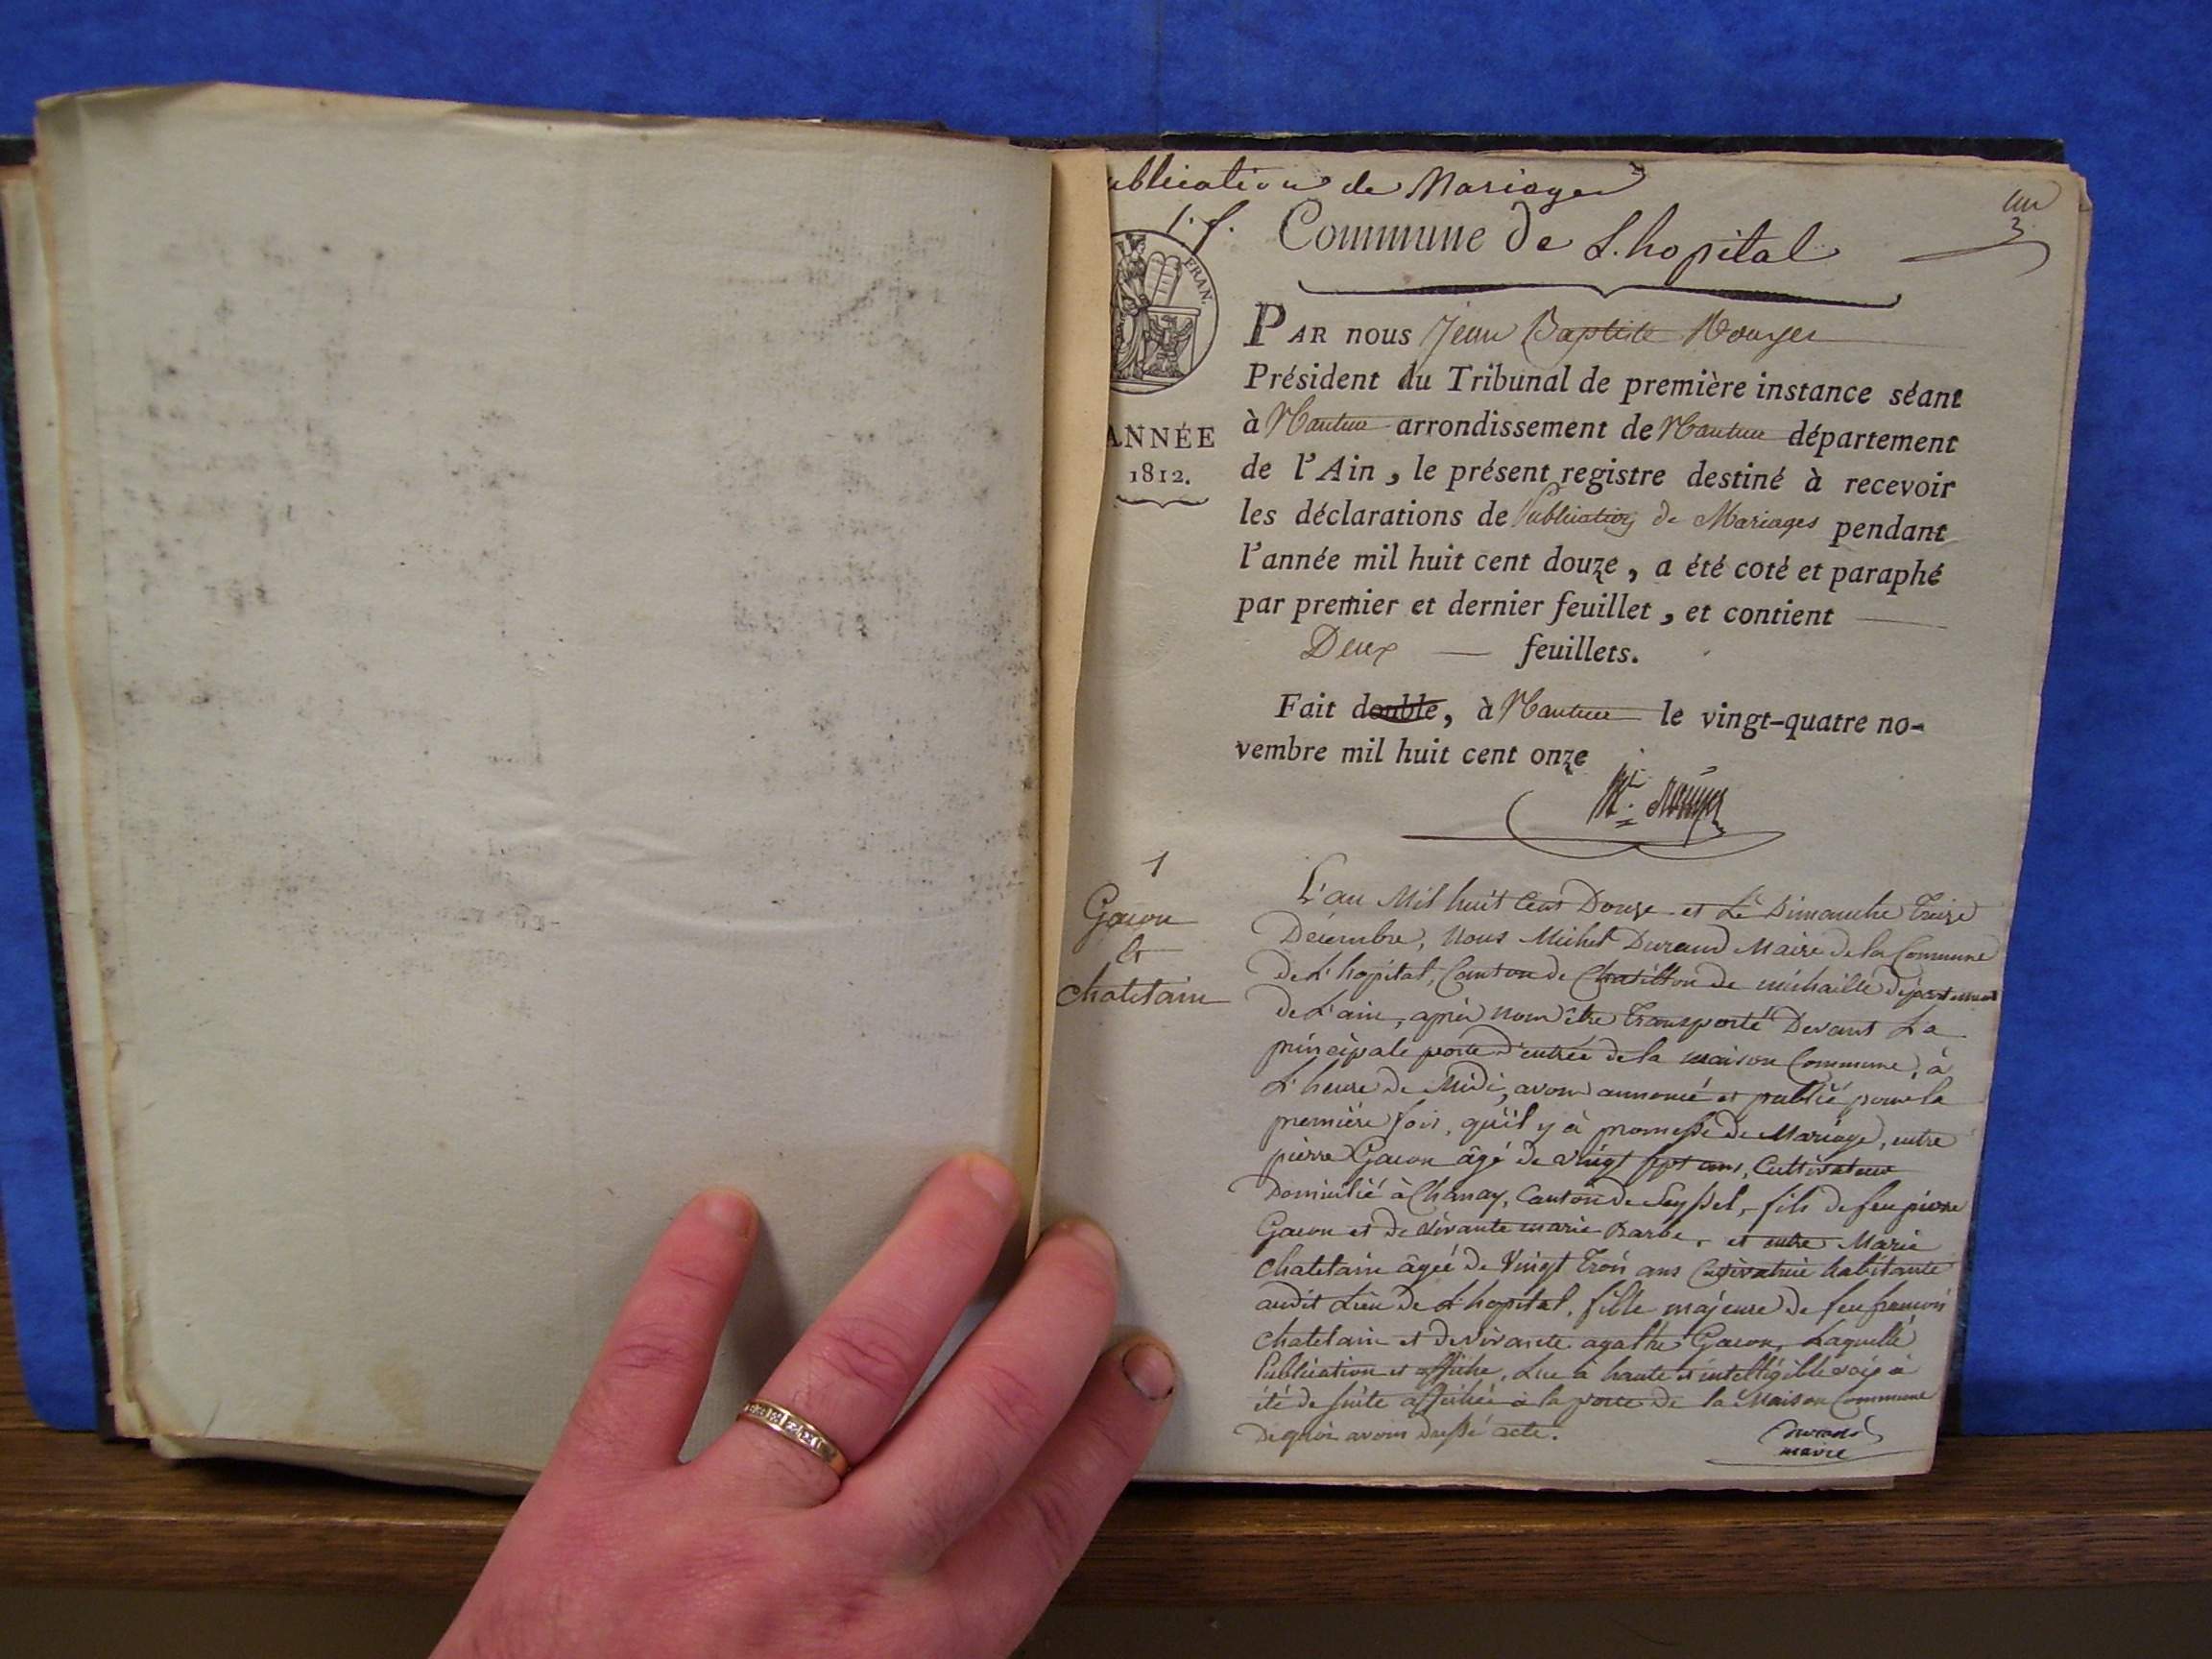 ublication de Mariages
un
1. f.
Commune de L'hopital
FRAN.
PAR nous Jean Baptiste
Président du Tribunal de première instance séant
à Nantua arrondissement de Nantua département
ANNÉE
1812.
de l'Ain, le présent registre destiné à recevoir
les déclarations de Publication de Mariages pendant
l'année mil huit cent douze, a été coté et paraphé
par premier et dernier feuillet, et contient
Deux feuillets.
Fait double, à Nantua le vingt-quatre no-
vembre mil huit cent onze
1
Gacon
&
chatelain
L'an Mil huit Cent Douze et Le Dimanche Treize
Décembre, Nous Michel Durand Maire de la Commune
de L'hopital, Canton de Chatillon de michaille département
de L'ain, après nous être Transporté Devant La
principale porte d'entrée de la maison Commune, à
L'heure de Midi, avons annoncé et publié pour la
première fois, qu'il y à promesse de Mariage, entre
pierre Gacon âgé de vingt sept ans, Cultivateur
Domicilié à Chanay, Canton de Seyssel, fils de feu pierre
Gacon et de vivante marie Barbe, et entre Marie
chatelain âgée de Vingt Trois ans Cultivatrice habitante
audit Lieu de L'hopital, fille majeure de feu françois
chatelain et de vivante agathe Gacon, Laquelle
Publication et affiche, Lue à haute et intelligible voix à
été de suite affichée à la porte de la Maison Commune
De quoi avons dressé acte.
Durand
maire